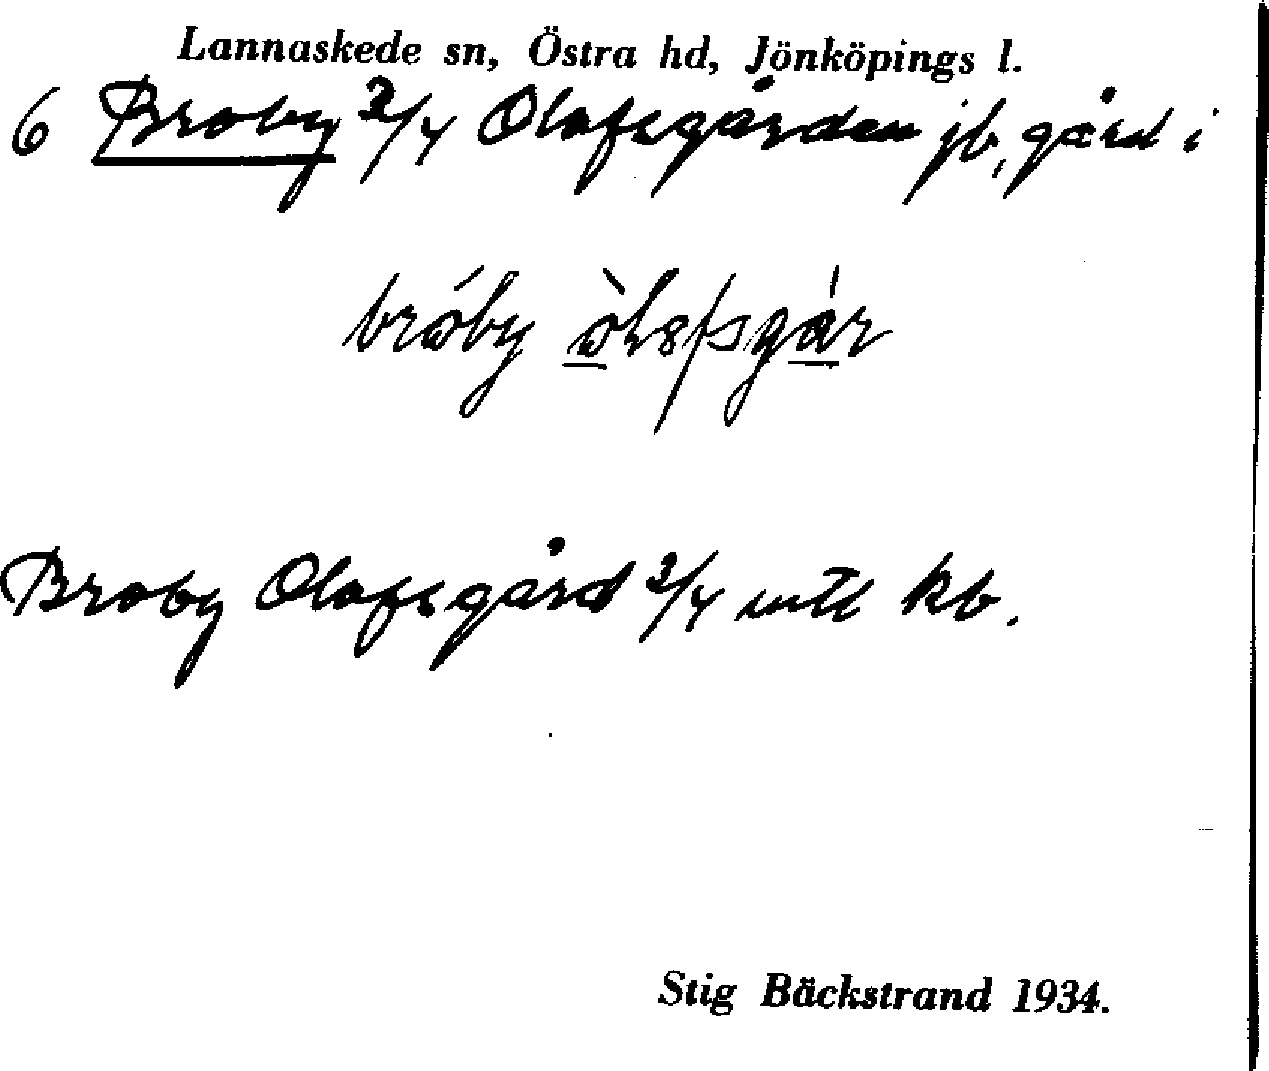 Lannaskede sn, Östra hd, Jönköpings l.
6 Broby 3/4 Olofsgården jb, gård i
bróby
Broby Olofsgård 3/4 mtl kb.
Stig Bäckstrand 1934.